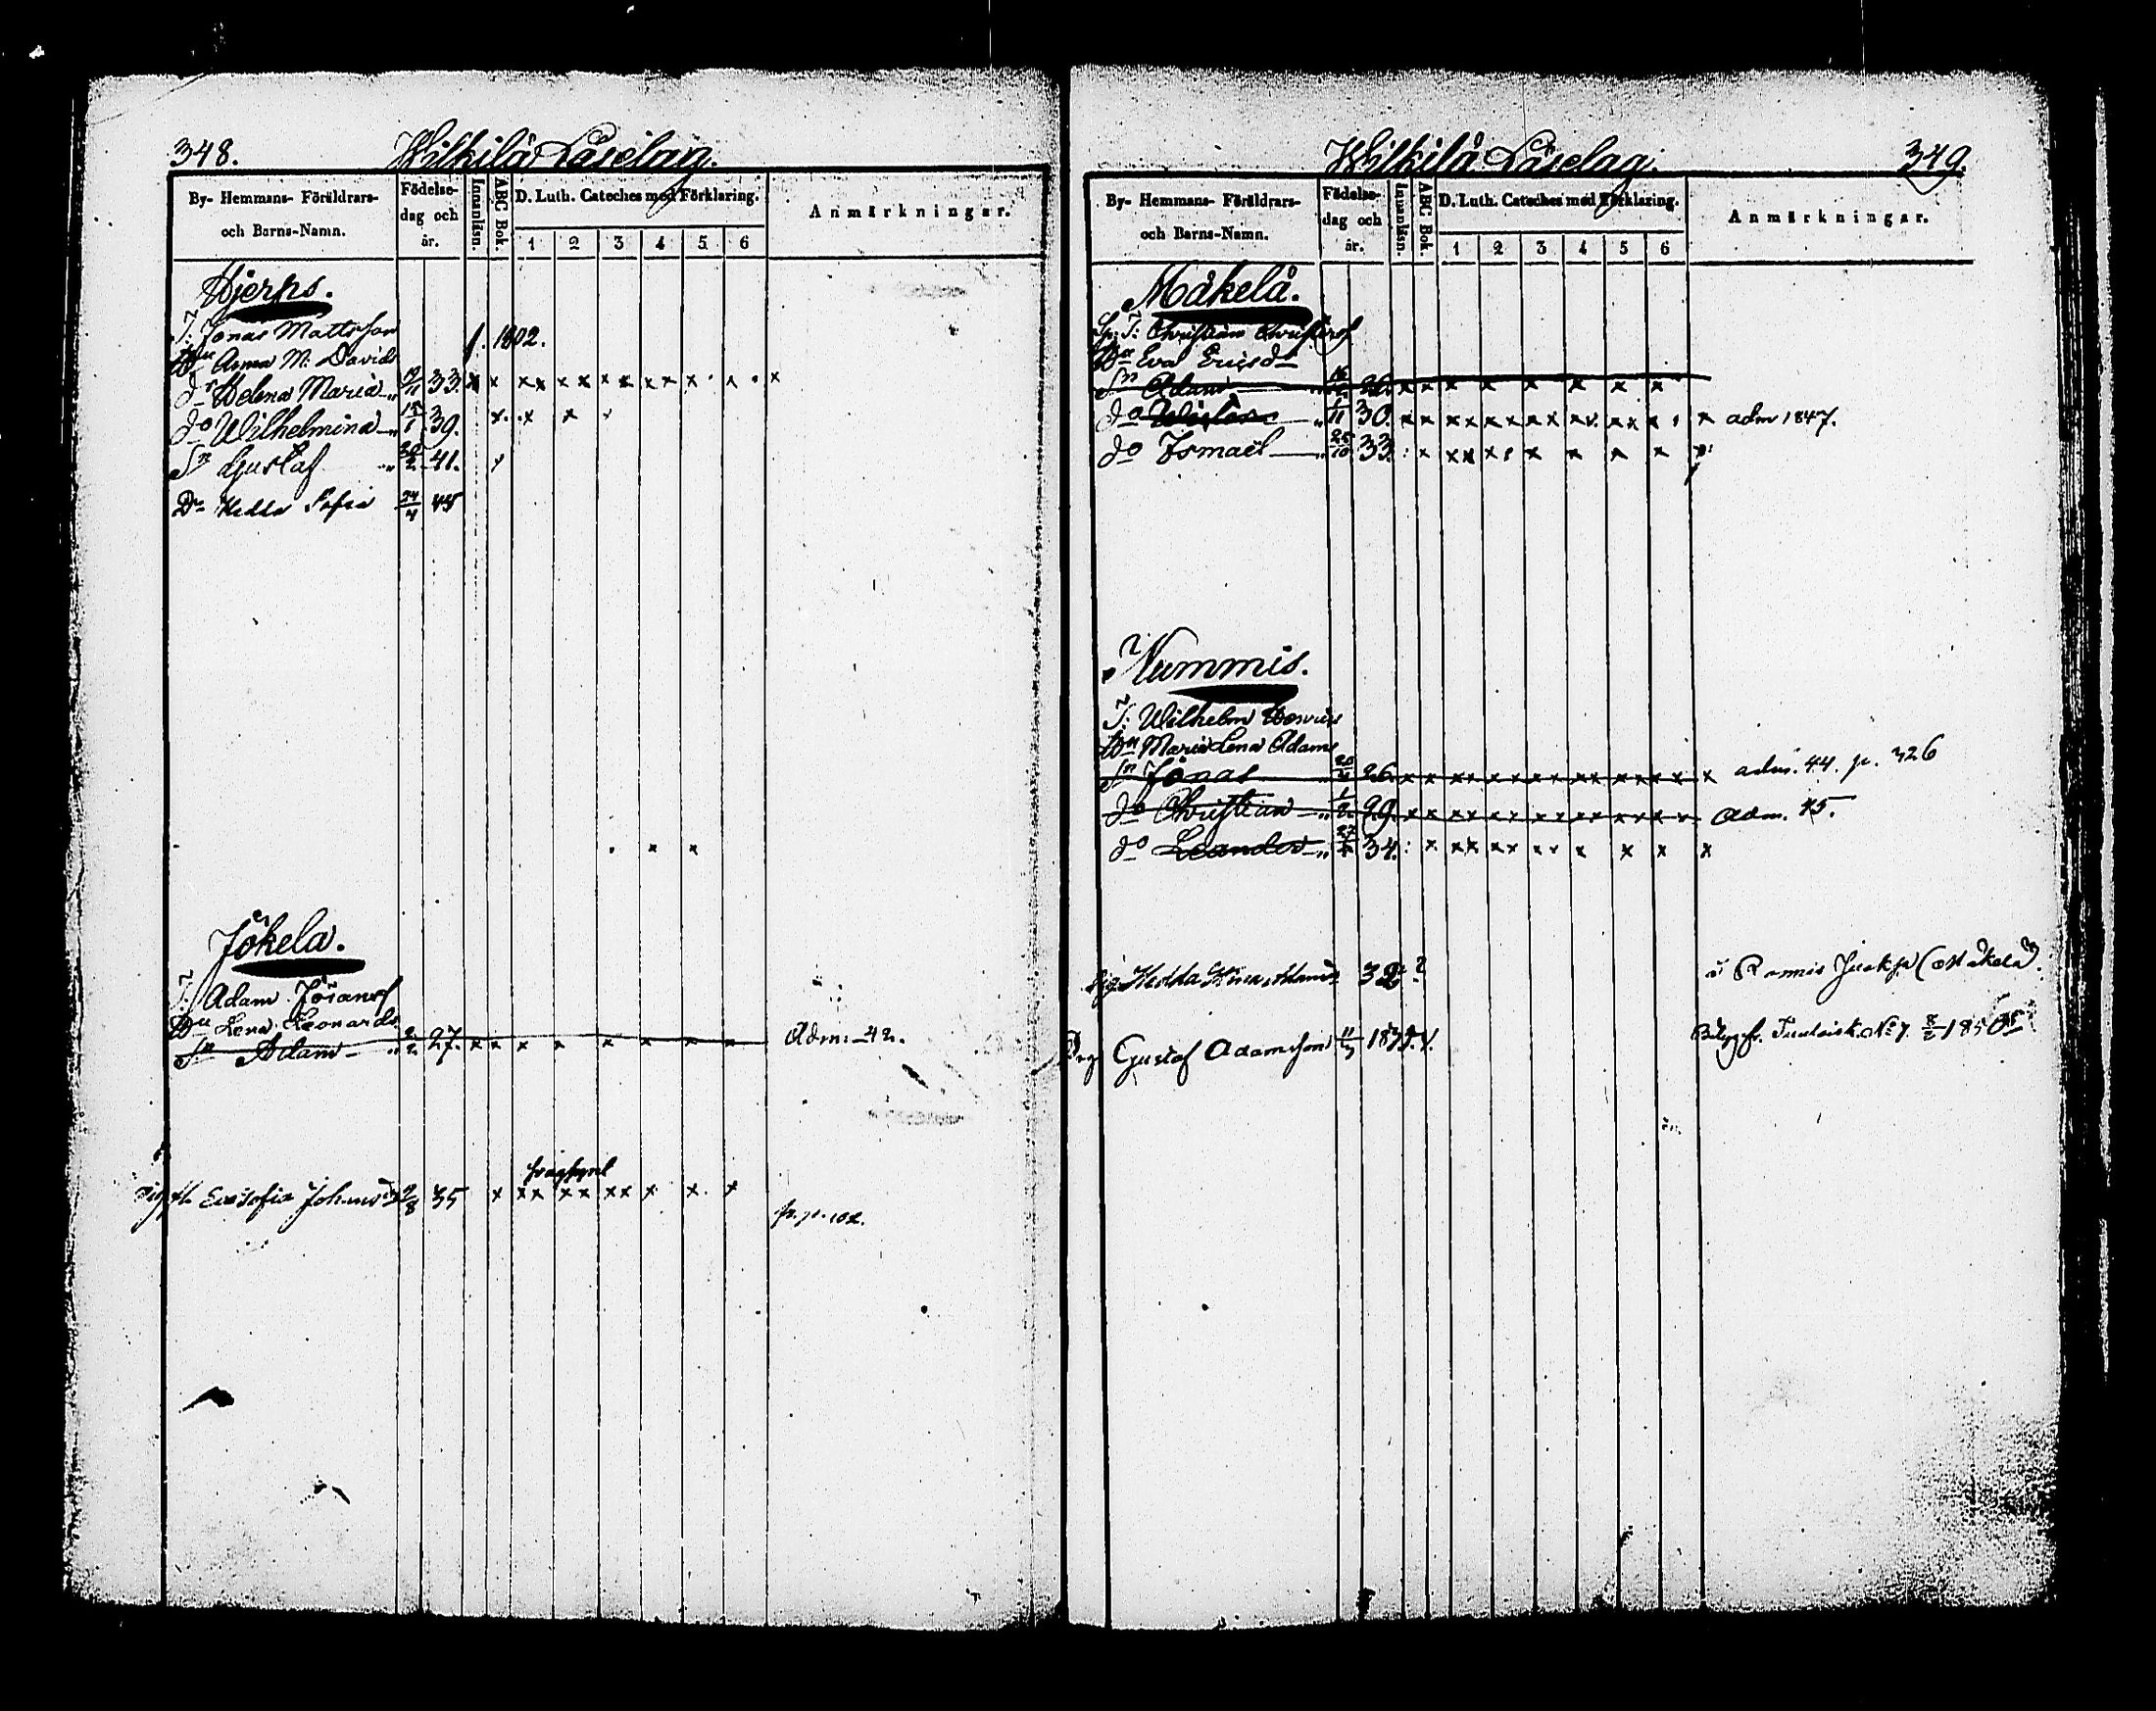 348.
Wilkilä Läselag.
By- Hemmans- Föräldrars-
och Barns-Namn.
Födelse-
dag och
år.
Innanläsn.
ABC Bok.
D. Luth. Cateches med Förklaring.
1 2 3 4 5 6
Anmärkningar.
Hjerps.
T: Jonas Mattsson
Hu Anna M: Davids
f. 1802.
dr Helena Maria 19/11 33. x x x x x x x x x x x x
do Wilhelmina 15/1 39. x x x
Sn Gustaf 41.
Dr Hedda Sofia 24/4 45
Jokela.
T: Adam
Hu Lena Leonards
Sn Adam 27. x x x x x x x x
Adm. 42.
Eva Sofia Johansdr 2/8 35 x xx xx xx x x x
p. p. 102.
Wilkilä Läselag.
349.
By- Hemmans- Föräldrars-
och Barns-Namn.
Födelse-
dag och
år.
Innanläsn.
ABC Bok.
D. Luth. Cateches med Förklaring.
1 2 3 4 5 6
Anmärkningar.
Mäkelä.
Sp. T: Christian
Hu Eva Ericsdr
Sn Adam 26. x x x x x x x x
do 1/11 30. x x xx xx xx x xx x adm 1847.
do Ismael 25/10 33. x xx x x x x x
Nummis.
T: Wilhelm
Hu Maria Lena Adams
Sn Jonas 26. x x xx xx xx xx xx xx x adm. 44. p. 326
do Christian 29. x x xx xx xx xx xx xx Adm. 45.
do Leander 27 34. x xx xx xx x x x x
Hedda 32 ?
(Mäkelä).
Drg Gustaf Adamsson 11/7
No 7. 8/2